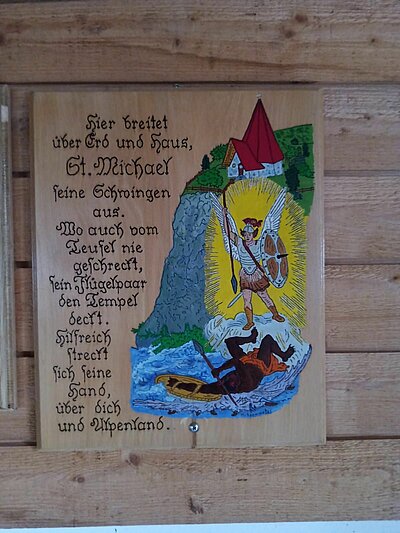 Hier breitet
über Erd und Haus,
St. Michael
seine Schwingen
aus.
Wo auch vom
Teufel nie
geschreckt,
sein Flügelpaar
den Tempel
deckt.
Hilfreich
streckt
sich seine
Hand,
über dich
und Alpenland.